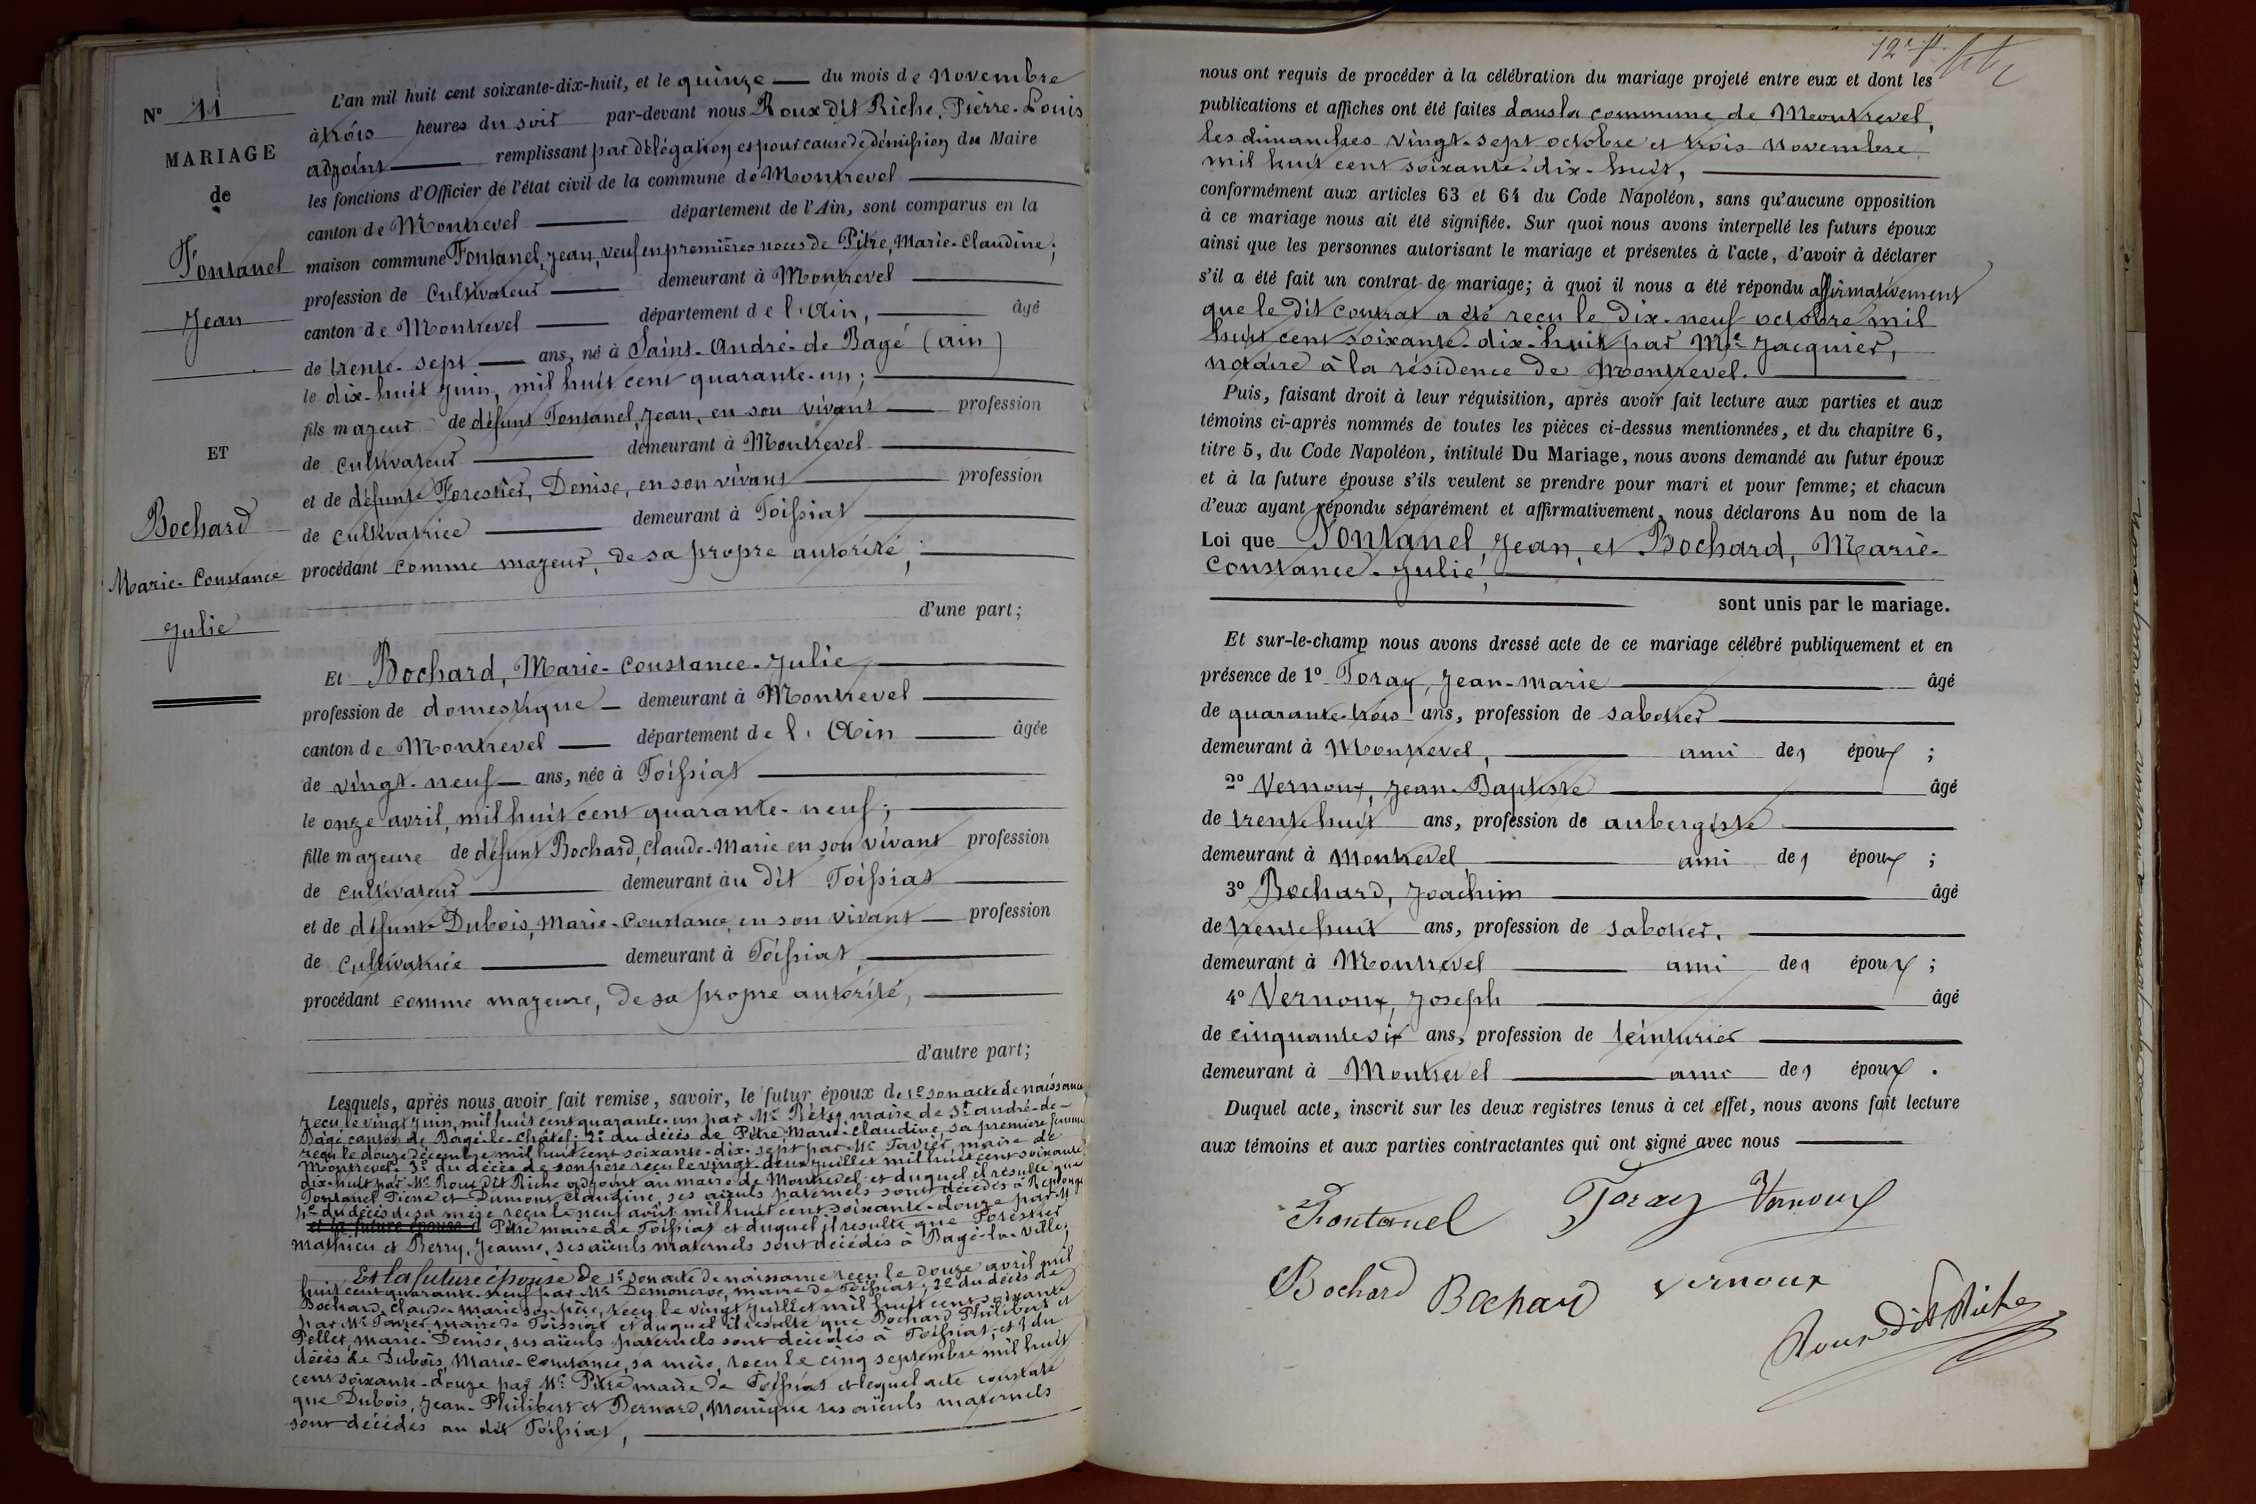 N° 11
MARIAGE
de
Fontanel
Jean
ET
Bochard
Marie-Constance
Julie
L'an mil huit cent soixante-dix-huit, et le quinze du mois de Novembre
à trois heures du soir par-devant nous Roux dit Riche, Pierre-Louis
adjoint remplissant par délégation et pour cause de démission du Maire
les fonctions d'Officier de l'état civil de la commune de Montrevel
canton de Montrevel département de l'Ain, sont comparus en la
maison commune Fontanel, Jean, veuf en premières noces de Pitre, Marie-Claudine,
profession de Cultivateur demeurant à Montrevel
canton de Montrevel département de l'Ain, âgé
de trente-sept ans, né à Saint-André-de Bagé (ain)
le dix-huit Juin, mil huit cent quarante-un;
fils majeur de défunt Fontanel, Jean, en son vivant profession
de cultivateur demeurant à Montrevel
et de défunte Forestier, Denise, en son vivant profession
de cultivatrice demeurant à Foissiat
procédant comme majeur, de sa propre autorité;
d'une part;
Et Bochard, Marie-Constance-Julie
profession de domestique demeurant à Montrevel
canton de Montrevel département de l'Ain âgée
de vingt-neuf ans, née à Foissiat
le onze avril, mil huit cent quarante-neuf;
fille majeure de défunt Bochard, Claude-Marie en son vivant profession
de cultivateur demeurant àu dit Foissiat
et de défunte Dubois, Marie-Constance, en son vivant profession
de cultivatrice demeurant à Foissiat,
procédant comme majeure, de sa propre autorité,
d'autre part;
Lesquels, après nous avoir fait remise, savoir, le futur époux de 1° son acte de naissance
reçu le vingt juin, mil huit cent quarante-un par Mr maire de St andré-de-
Bagé canton de Bagé-le-Châtel; 2° du décès de Pitre, Marie-Claudine, sa première femme
reçu le douze décembre mil huit cent soixante-dix-sept par Mr Tavier, maire de
Montrevel; 3° du décès de son père reçu le vingt-deux juillet mil huit cent soixante-
dix-huit par Mr Roux dit Riche adjoint au maire de Montrevel et duquel il résulte que
Fontanel Pierre et Dumont, Claudine, ses aïeuls paternels sont décédés à Replonges
4° du décès de sa mère reçu le neuf août mil huit cent soixante-douze par M
et la future épouse d Pitre maire de Foissiat et duquel il résulte que Forestier
Mathieu et Berry, Jeanne, ses aïeuls maternels sont décédés à Bagé-la-ville;
Et la future épouse de 1° son acte de naissance reçu le douze avril mil
huit cent quarante-neuf par Mr maire de Foissiat; 2° du décès de
Bochard, Claude-Marie son père, reçu le vingt juillet mil huit cent soixante
par Mr Tavier maire de Foissiat et duquel il résulte que Bochard Philibert et
Pellet, Marie-Denise, ses aïeuls paternels sont décédés à Foissiat; et 3 du
décès de Dubois, Marie-Constance, sa mère, reçu le cinq septembre mil huit
cent soixante-douze par Mr Pitre maire de Foissiat et lequel acte constate
que Dubois, Jean-Philibert et Bernard, Monique ses aïeuls maternels
sont décédés au dit Foissiat,
nous ont requis de procéder à la célébration du mariage projeté entre eux et dont les
publications et affiches ont été faites dans la commune de Montrevel,
les dimanches vingt-sept octobre et trois novembre
mil huit cent soixante-dix-huit,
conformément aux articles 63 et 64 du Code Napoléon, sans qu'aucune opposition
à ce mariage nous ait été signifiée. Sur quoi nous avons interpellé les futurs époux
ainsi que les personnes autorisant le mariage et présentes à l'acte, d'avoir à déclarer
s'il a été fait un contrat de mariage; à quoi il nous a été répondu affirmativement
que le dit contrat a été reçu le dix-neuf octobre mil
huit cent soixante-dix-huit par Me Jacquier,
notaire à la résidence de Montrevel.
Puis, faisant droit à leur réquisition, après avoir fait lecture aux parties et aux
témoins ci-après nommés de toutes les pièces ci-dessus mentionnées, et du chapitre 6,
titre 5, du Code Napoléon, intitulé Du Mariage, nous avons demandé au futur époux
et à la future épouse s'ils veulent se prendre pour mari et pour femme; et chacun
d'eux ayant répondu séparément et affirmativement, nous déclarons Au nom de la
Loi que Fontanel, Jean, et Bochard, Marie-
Constance-Julie,
sont unis par le mariage.
Et sur-le-champ nous avons dressé acte de ce mariage célébré publiquement et en
présence de 1° Foray, Jean-Marie âgé
de quarante-trois ans, profession de sabotier
demeurant à Montrevel, ami des époux;
2° Vernoux, Jean-Baptiste âgé
de trente huit ans, profession de aubergiste
demeurant à Montrevel ami des époux;
3° Bochard, Joachim âgé
de trente huit ans, profession de sabotier.
demeurant à Montrevel ami des époux;
4° Vernoux, Joseph âgé
de cinquante six ans, profession de teinturier
demeurant à Montrevel ami des époux.
Duquel acte, inscrit sur les deux registres tenus à cet effet, nous avons fait lecture
aux témoins et aux parties contractantes qui ont signé avec nous
Fontanel Foray Vernoux
Bochard Bochard Vernoux
Roux Dit Riche